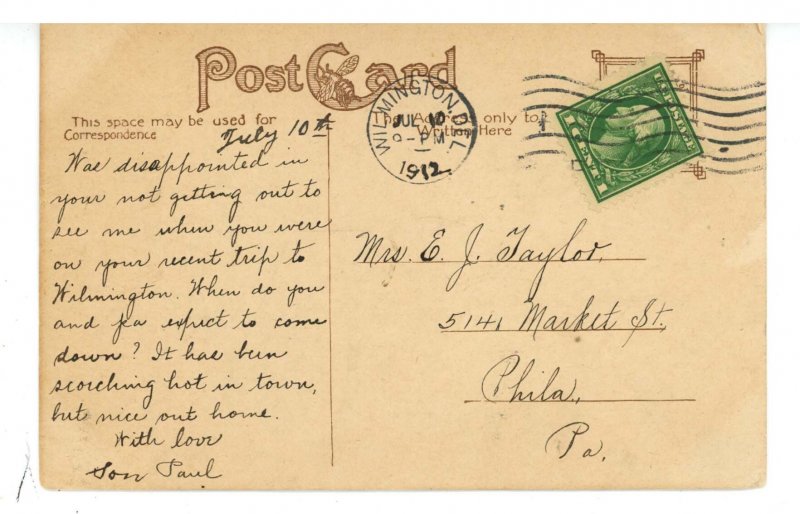 Post Card
This space may be used for
Correspondence
The Address only to be
Written Here
WILMINGTON, DEL
JUL 10
PM
1912
U.S. POSTAGE
1 CENT 1
July 10th
Was disappointed in
your not getting out to
see me when you were
on your recent trip to
Wilmington. When do you
and pa expect to come
down? It has been
scorching hot in town,
but nice out home.
With love
Son Paul
Mrs. E. J. Taylor,
5141 Market St,
Phila,
Pa.